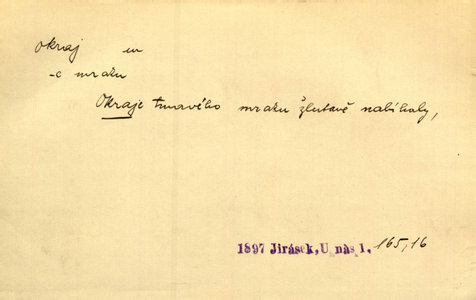 okraj m
-e mraku
Okraje tmavého mraku žlutavě nabíhaly,
1897 Jirásek, U nás 1. 165,16